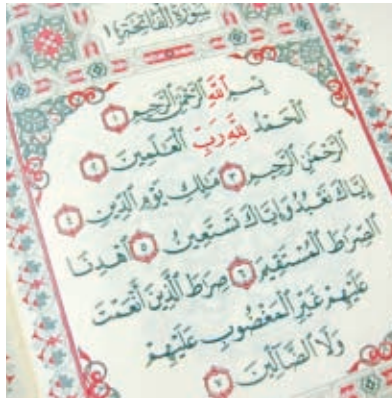 سورة الفاتحة ١
بِسْمِ ٱللَّهِ ٱلرَّحْمَٰنِ ٱلرَّحِيمِ ١
ٱلْحَمْدُ لِلَّهِ رَبِّ ٱلْعَٰلَمِينَ ٢
ٱلرَّحْمَٰنِ ٱلرَّحِيمِ ٣ مَٰلِكِ يَوْمِ ٱلدِّينِ ٤
إِيَّاكَ نَعْبُدُ وَإِيَّاكَ نَسْتَعِينُ ٥ ٱهْدِنَا
ٱلصِّرَٰطَ ٱلْمُسْتَقِيمَ ٦ صِرَٰطَ ٱلَّذِينَ أَنْعَمْتَ
عَلَيْهِمْ غَيْرِ ٱلْمَغْضُوبِ عَلَيْهِمْ
وَلَا ٱلضَّآلِّينَ ٧